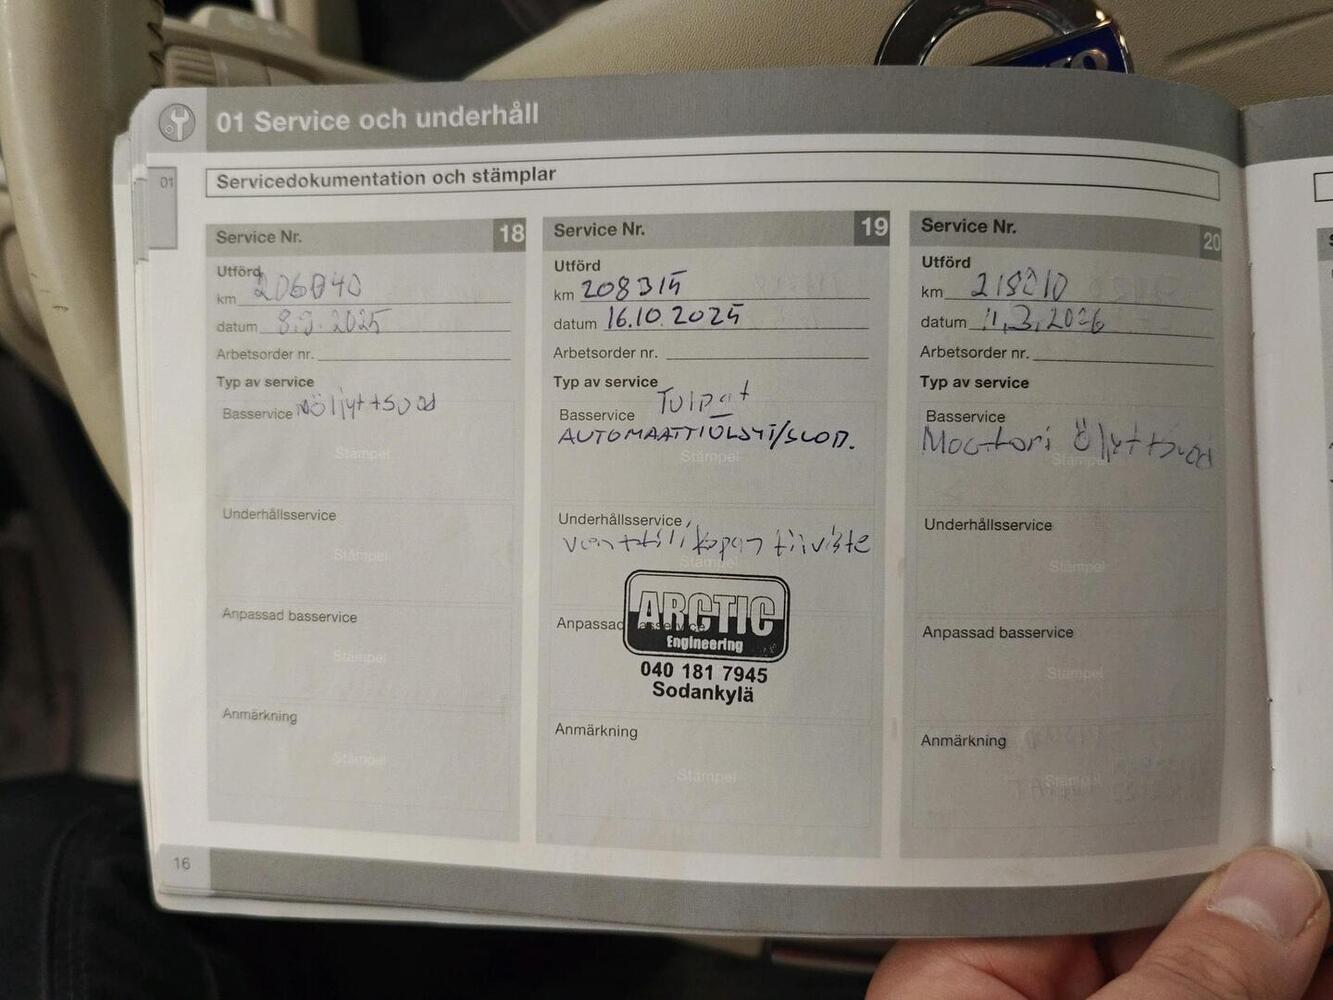 01 Service och underhåll
01
Servicedokumentation och stämplar
Service Nr. 18
Utförd
km 206040
datum 8.9.2025
Arbetsorder nr.
Typ av service
Basservice
Stämpel
Underhållsservice
Stämpel
Anpassad basservice
Stämpel
Anmärkning
Stämpel
Service Nr. 19
Utförd
km 208315
datum 16.10.2025
Arbetsorder nr.
Typ av service
Basservice Tulpat
AUTOMAATTIÖLJYT/SUOD.
Stämpel
Underhållsservice
venttiilikopan tiiviste
Stämpel
Anpassad basservice
ARCTIC
Engineering
040 181 7945
Sodankylä
Anmärkning
Stämpel
Service Nr. 20
Utförd
km 218010
datum 11.3.2026
Arbetsorder nr.
Typ av service
Basservice
Moottori Öljyt+suod
Stämpel
Underhållsservice
Stämpel
Anpassad basservice
Stämpel
Anmärkning
Stämpel
16